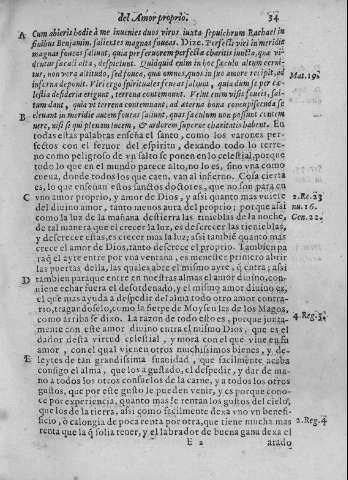 del Amor proprio. 34
A Cum abieris hodie à me inuenies duos viros iuxta sepulchrum Rachael in
finibus Benjamin, salientes magnas foueas. Dize. Perfecte viri in meridie
magnas foueas saliunt, quia per feruorem perfectæ charitis iuncta, qua vi-
dentur sæculi alta, despiciunt. Quidquid enim in hoc sæculo altum cerni-
tur, non vera altitudo, sed fouea, qua omnes, quos in suo amore recipit, ad
inferna deponit. Viri ergo spirituales foueas saliunt, quia dum se per cæ-
lestia desideria erigunt, terrena contemnunt.
tum dant, quia vt terrena contemnant, ad æterna bona concupiscenda se
B eleuant in meridie autem foueas saliunt, quas sæculum non possunt contem
nere, nisi se qui plenum lucem, & ardorem superne charitatis habent. En
todas estas palabras enseña el santo, como los varones per-
fectos con el feruor del espiritu, dexando todo lo terre-
no como peligroso de vn salto se ponen en lo celestial, porque
todo lo que en el mundo parece alto, no lo es, sino vna como
cueua, donde todos los que caen, van al infierno. Cosa cierta
es, lo que enseñan estos sanctos doctores, que no son para en
C vno amor proprio, y amor de Dios, y assi quanto mas vuiete
del diuino amor, tanto menos aura del proprio; porque assi
como la luz de la mañana destierra las tinieblas de la noche,
de tal manera que el crecer la luz, es descrecer las tienieblas,
y descrecer ellas, es crecer mas la luz; assi tambiē quanto mas
crece el amor de Dios, tanto descrece el proprio. Tambien pa
raq̃ el ayre entre por vna ventana, es menester primero abrir
las puertas della, las quales abre el mismo ayre, q̃ entra; assi
D tambien paraque entre en nuestras almas el amor diuino, con-
uiene echar fuera el desordenado, y el mismo amor diuino es,
el que mas ayuda à despedir del alma todo otro amor contra-
rio, tragandoselo, como la sierpe de Moysen las de los Magos,
como arriba se dixo. La razon de todo esto es, porque junta-
mente con este amor diuino entra el mismo Dios, que es el
dador desta virtud celestial, y mora con el que viue en su
amor, con el qual vienen otros muchissimos bienes, y de-
E leytes de tan grandissima suauidad, que facilmente acaba
consigo el alma, que los à gustado, el despedir, y dar de ma-
no a todos los otros consuelos de la carne, y a todos los otros
gustos, que por este gusto le pueden venir, y es porque cono-
ce por experiencia, quanto mas se rentan los gustos del cielo,
que los de la tierra, assi como facilmente dexa vno vn benefi-
ficio, ò calongia de poca renta por otra, que tiene mucha mas
renta que la q̃ solia tener, y el labrador de buena gana dexa el
E 2 arado
Mat. 19.
2. Re. 23
nu. 16.
Gen. 22.
4. Reg. 3.
2. Reg. 4